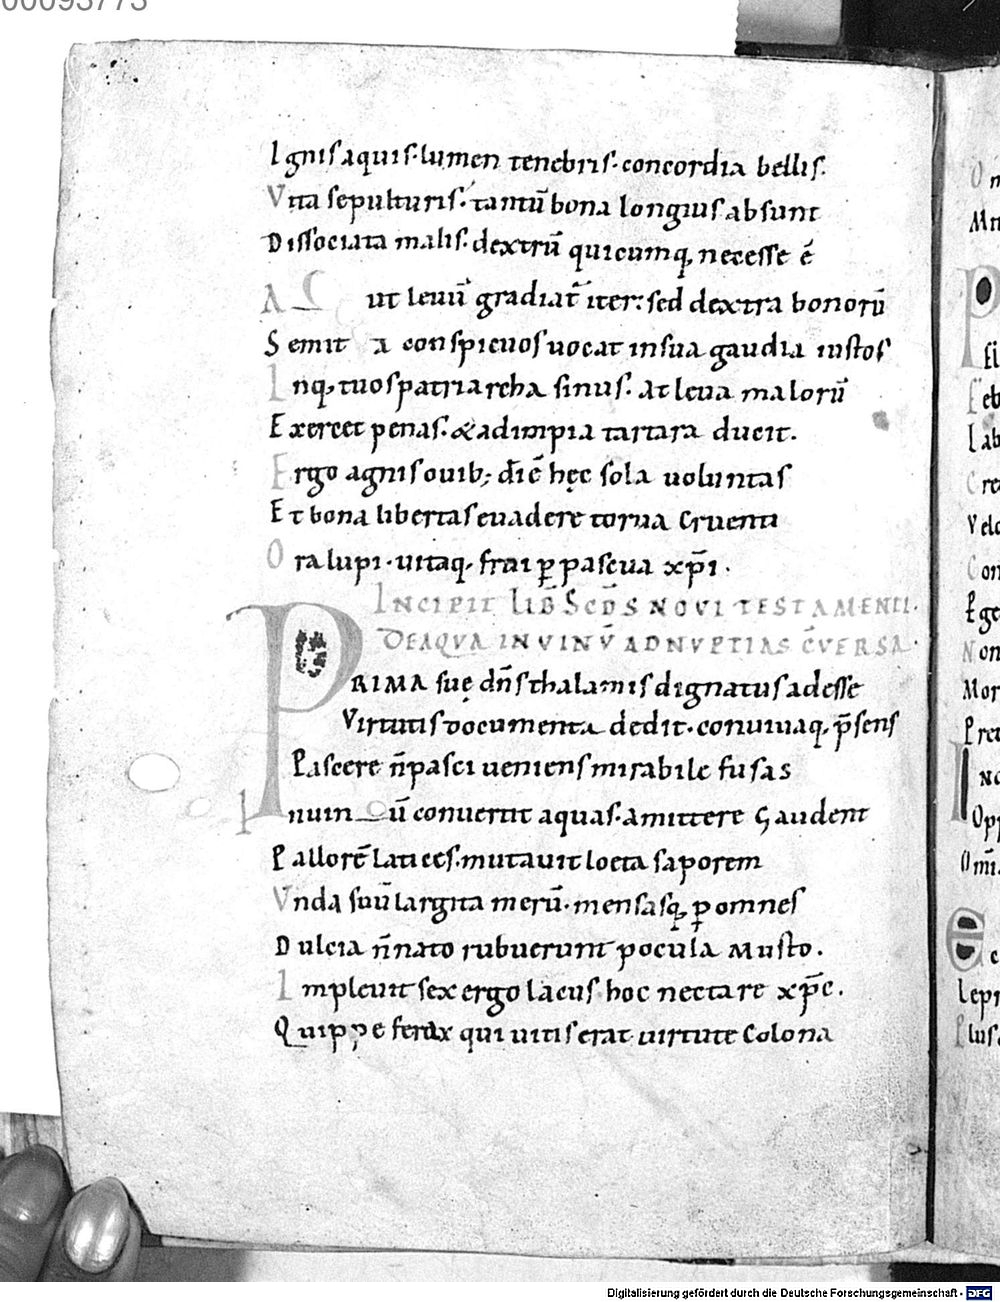 00093773
Ignis aquis· lumen tenebris· concordia bellis·
Vita sepulturis· tantū bona longius absunt
Dissociata malis· dextrū quicumq; necesse ē
Aut leuū gradiat̄ iter: sed dextra bonorū
Semita conspicuos uocat in sua gaudia iustos
Inq; tuos patriarcha sinus· at leua malorū
Exercet penas· & ad impia tartara ducit.
Ergo agnis ouib; d̄ic̄ hęc sola uoluntas
Et bona libertas euadere torua cruenti
Ora lupi· uitaq; frui ꝑ pascua xp̄i·
INCIPIT LIB̄ SCD̄S NOVI TESTAMENTI·
DE AQVA IN VINV̄ AD NVPTIAS C̄VERSA·
PRIMA suę dn̄s thalamis dignatus adesse
Virtutis documenta dedit· conuiuaq; p̄sens
Pascere n̄ pasci ueniens mirabile fusas
In uinū conuertit aquas· amittere gaudent
Pallorē latices· mutauit loeta saporem
Vnda suū largita merū· mensasq; ꝑ omnes
Dulcia n̄ nato rubuerunt pocula musto.
Impleuit sex ergo lacus hoc nectare xp̄c.
Quippe ferax qui uitis erat uirtute colona
Digitalisierung gefördert durch die Deutsche Forschungsgemeinschaft - DFG